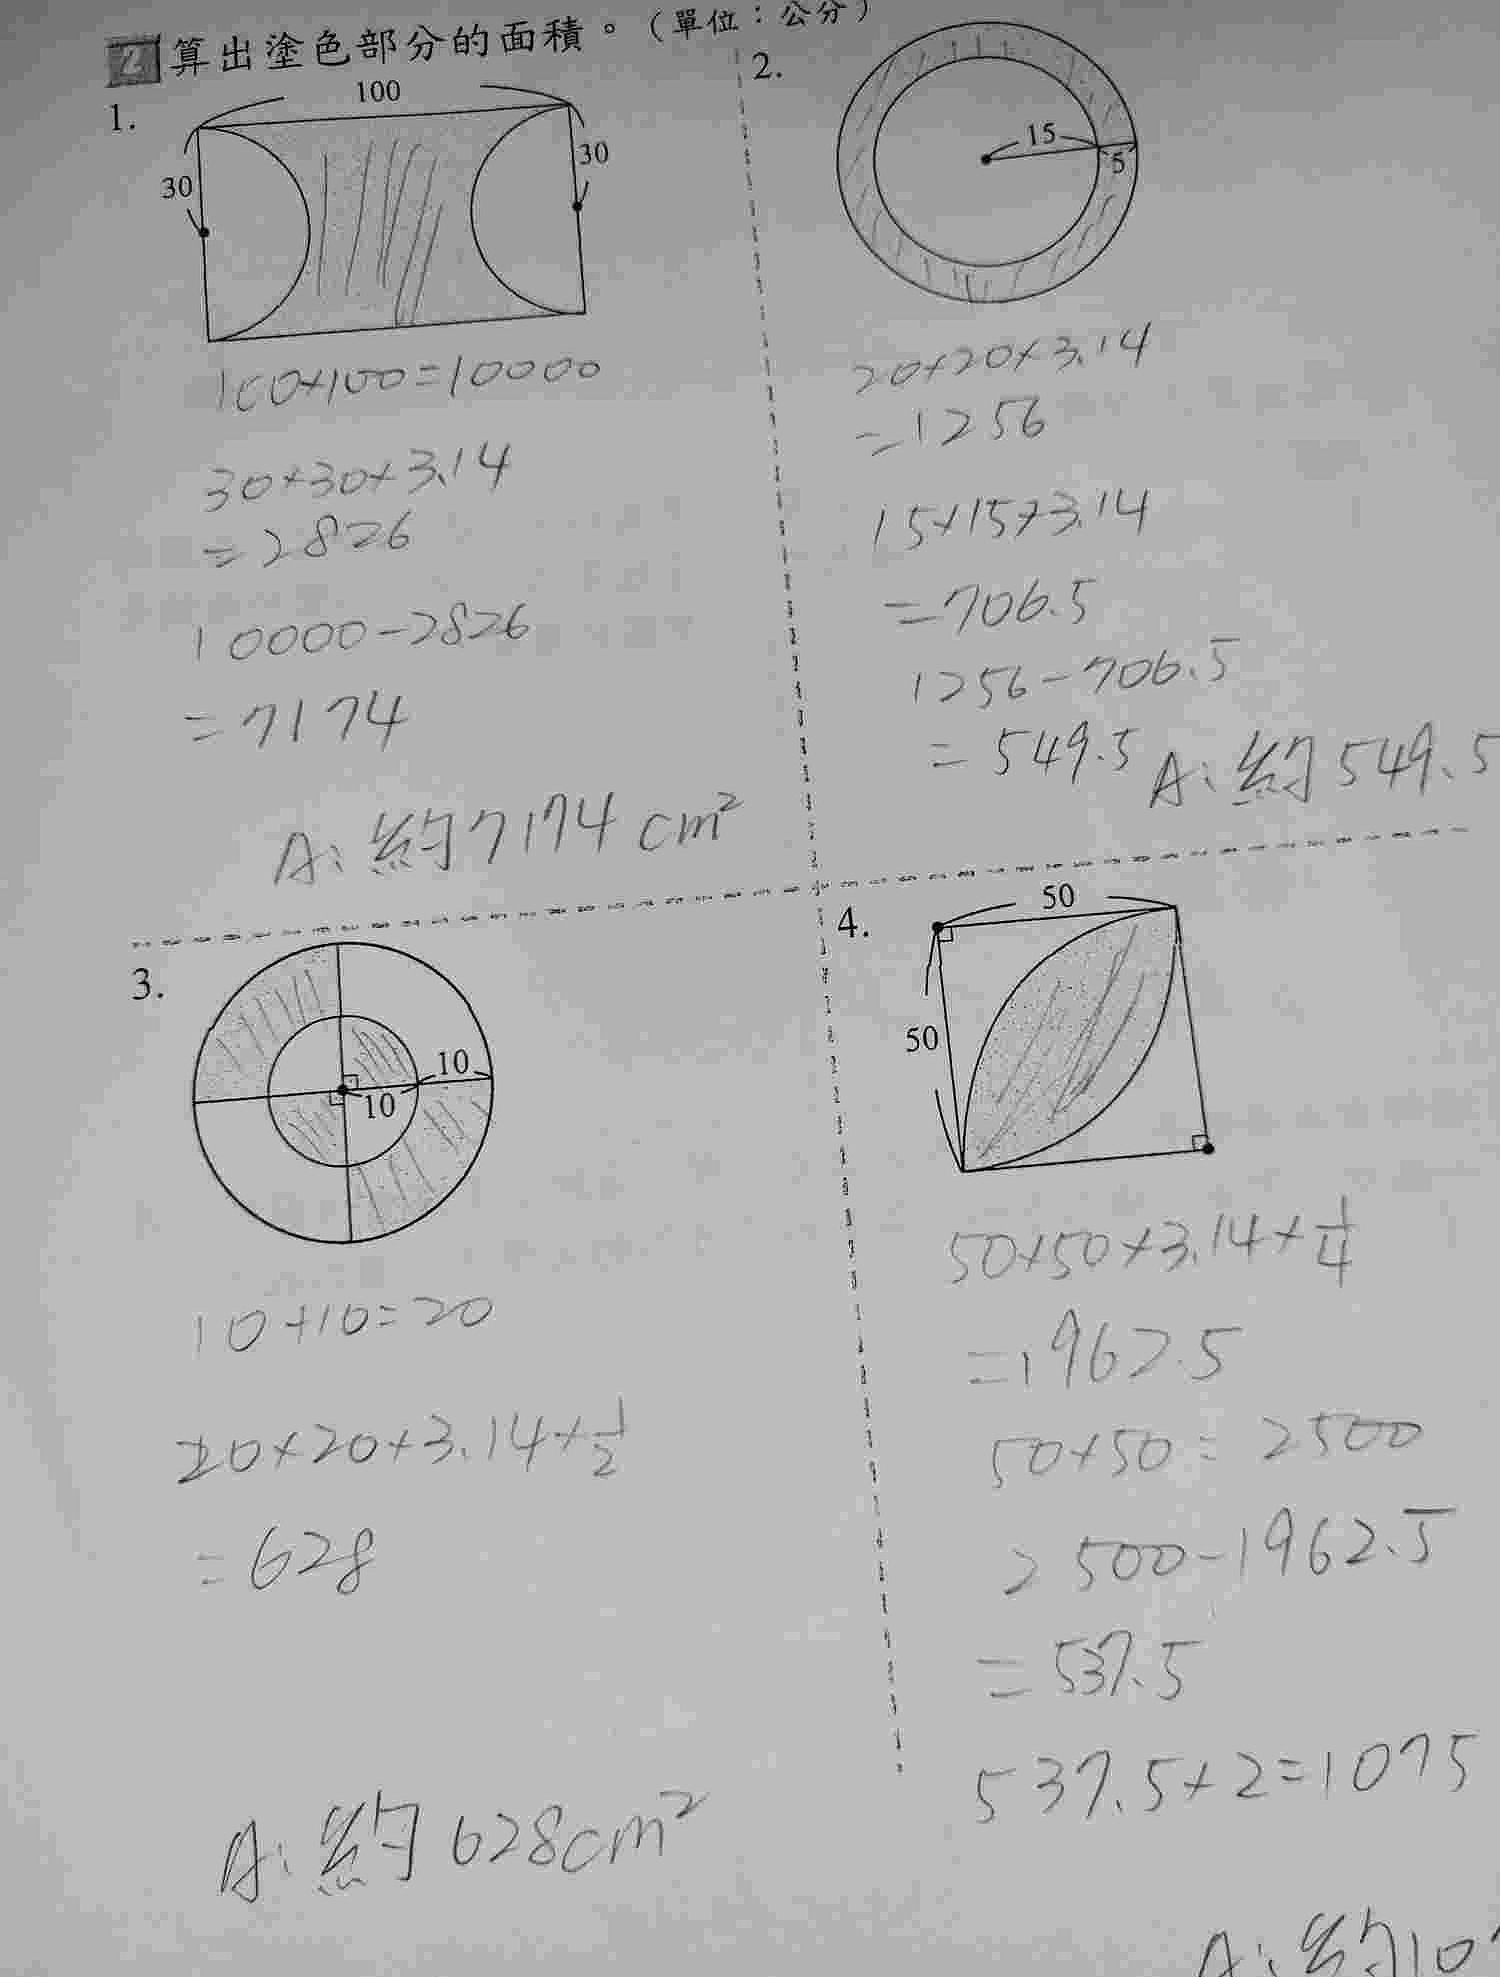 2 算出塗色部分的面積。(單位：公分)
1.
100
30
30
100×100=10000
30×30×3.14
=2826
10000-2826
=7174
A:約7174cm²
2.
15
5
20×20×3.14
=1256
15×15×3.14
=706.5
1256-706.5
=549.5
A:約549.5
3.
10
10
10+10=20
20×20×3.14×1/2
=628
A:約628cm²
4.
50
50
50×50×3.14×1/4
=1962.5
50×50=2500
2500-1962.5
=537.5
537.5×2=1075
A:約10